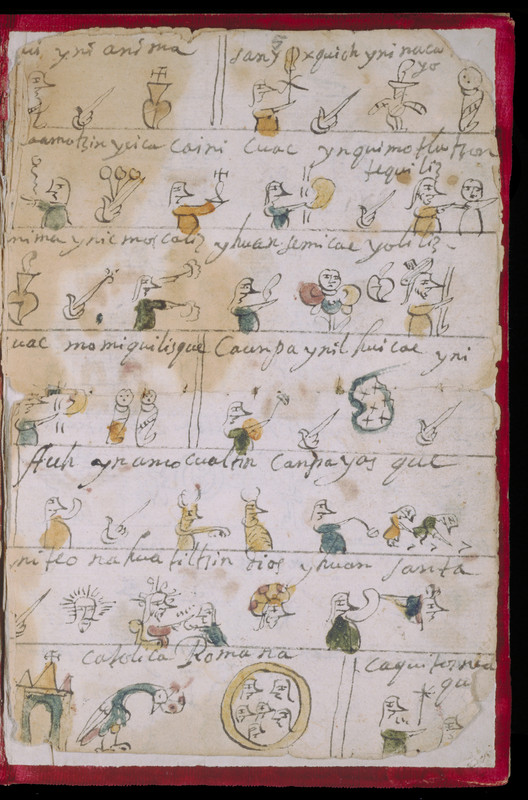 yni anima Sany yxquich yni naca
yo
ycica Caini Cuac ynquimotlatzon
tequiliz
nima ynic moscaliz yhuan semicac yoliliz
uac momiquilisque Caunpa ynilhuicac yni
Auh ynamo cualtin Canpa yas que
niteo nahuatiltzin Dios yhuan santa
Catolica Romana caquitoznea
qu